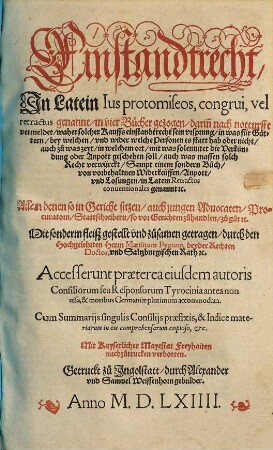 Einstandtrecht,
In Latein Ius protomiseos, congrui, vel
retractus genannt, in vier Bücher gezogen, darin nach notturfft
vermeldet, woher solcher Kauffs einstandtrecht sein ursprung, in was für Güt-
tern, bey welchen, und wider wölche Personen es statt hab oder nicht,
auch zů was zeyt, in welchem ort, mit was solenniter die Verkün-
dung oder Anpott geschehen soll, auch was massen solch
Recht verwürckt, Sampt einem sondern Bůch,
von vorbehaltnen Widerkeüffen, Anpott,
und Losungen, in Latein Retractus
conuentionales genannt ꝛc.
Allen denen so in Gericht sitzen, auch jungen Aduocaten, Pro-
curatorn, Stattschreibern, so vor Gerichten zůhandlen, zů gůt ꝛc.
Mit sonderm fleiß gestelt und zůsamen getragen, durch den
Hochgelehrten Herrn Martinum Pegium, beyder Rechten
Doctor, und Saltzburgischen Rath ꝛc.
Accesserunt præterea eiusdem autoris
Consiliorum seu Responsorum Tyrocinia antea non
uisa, & moribus Germaniæ plurimum accommodata.
Cum Summarijs singulis Consilijs præfixis, & Indice mate-
riarum in eis comprehensarum copioso, &c.
Mit Kayserlicher Mayestat Freyhaiten
nachzůtrucken verbotten.
Getruckt zů Ingolstatt, durch Alexander
und Samuel Weissenhorn gebrüder.
Anno M. D. LXIIII.